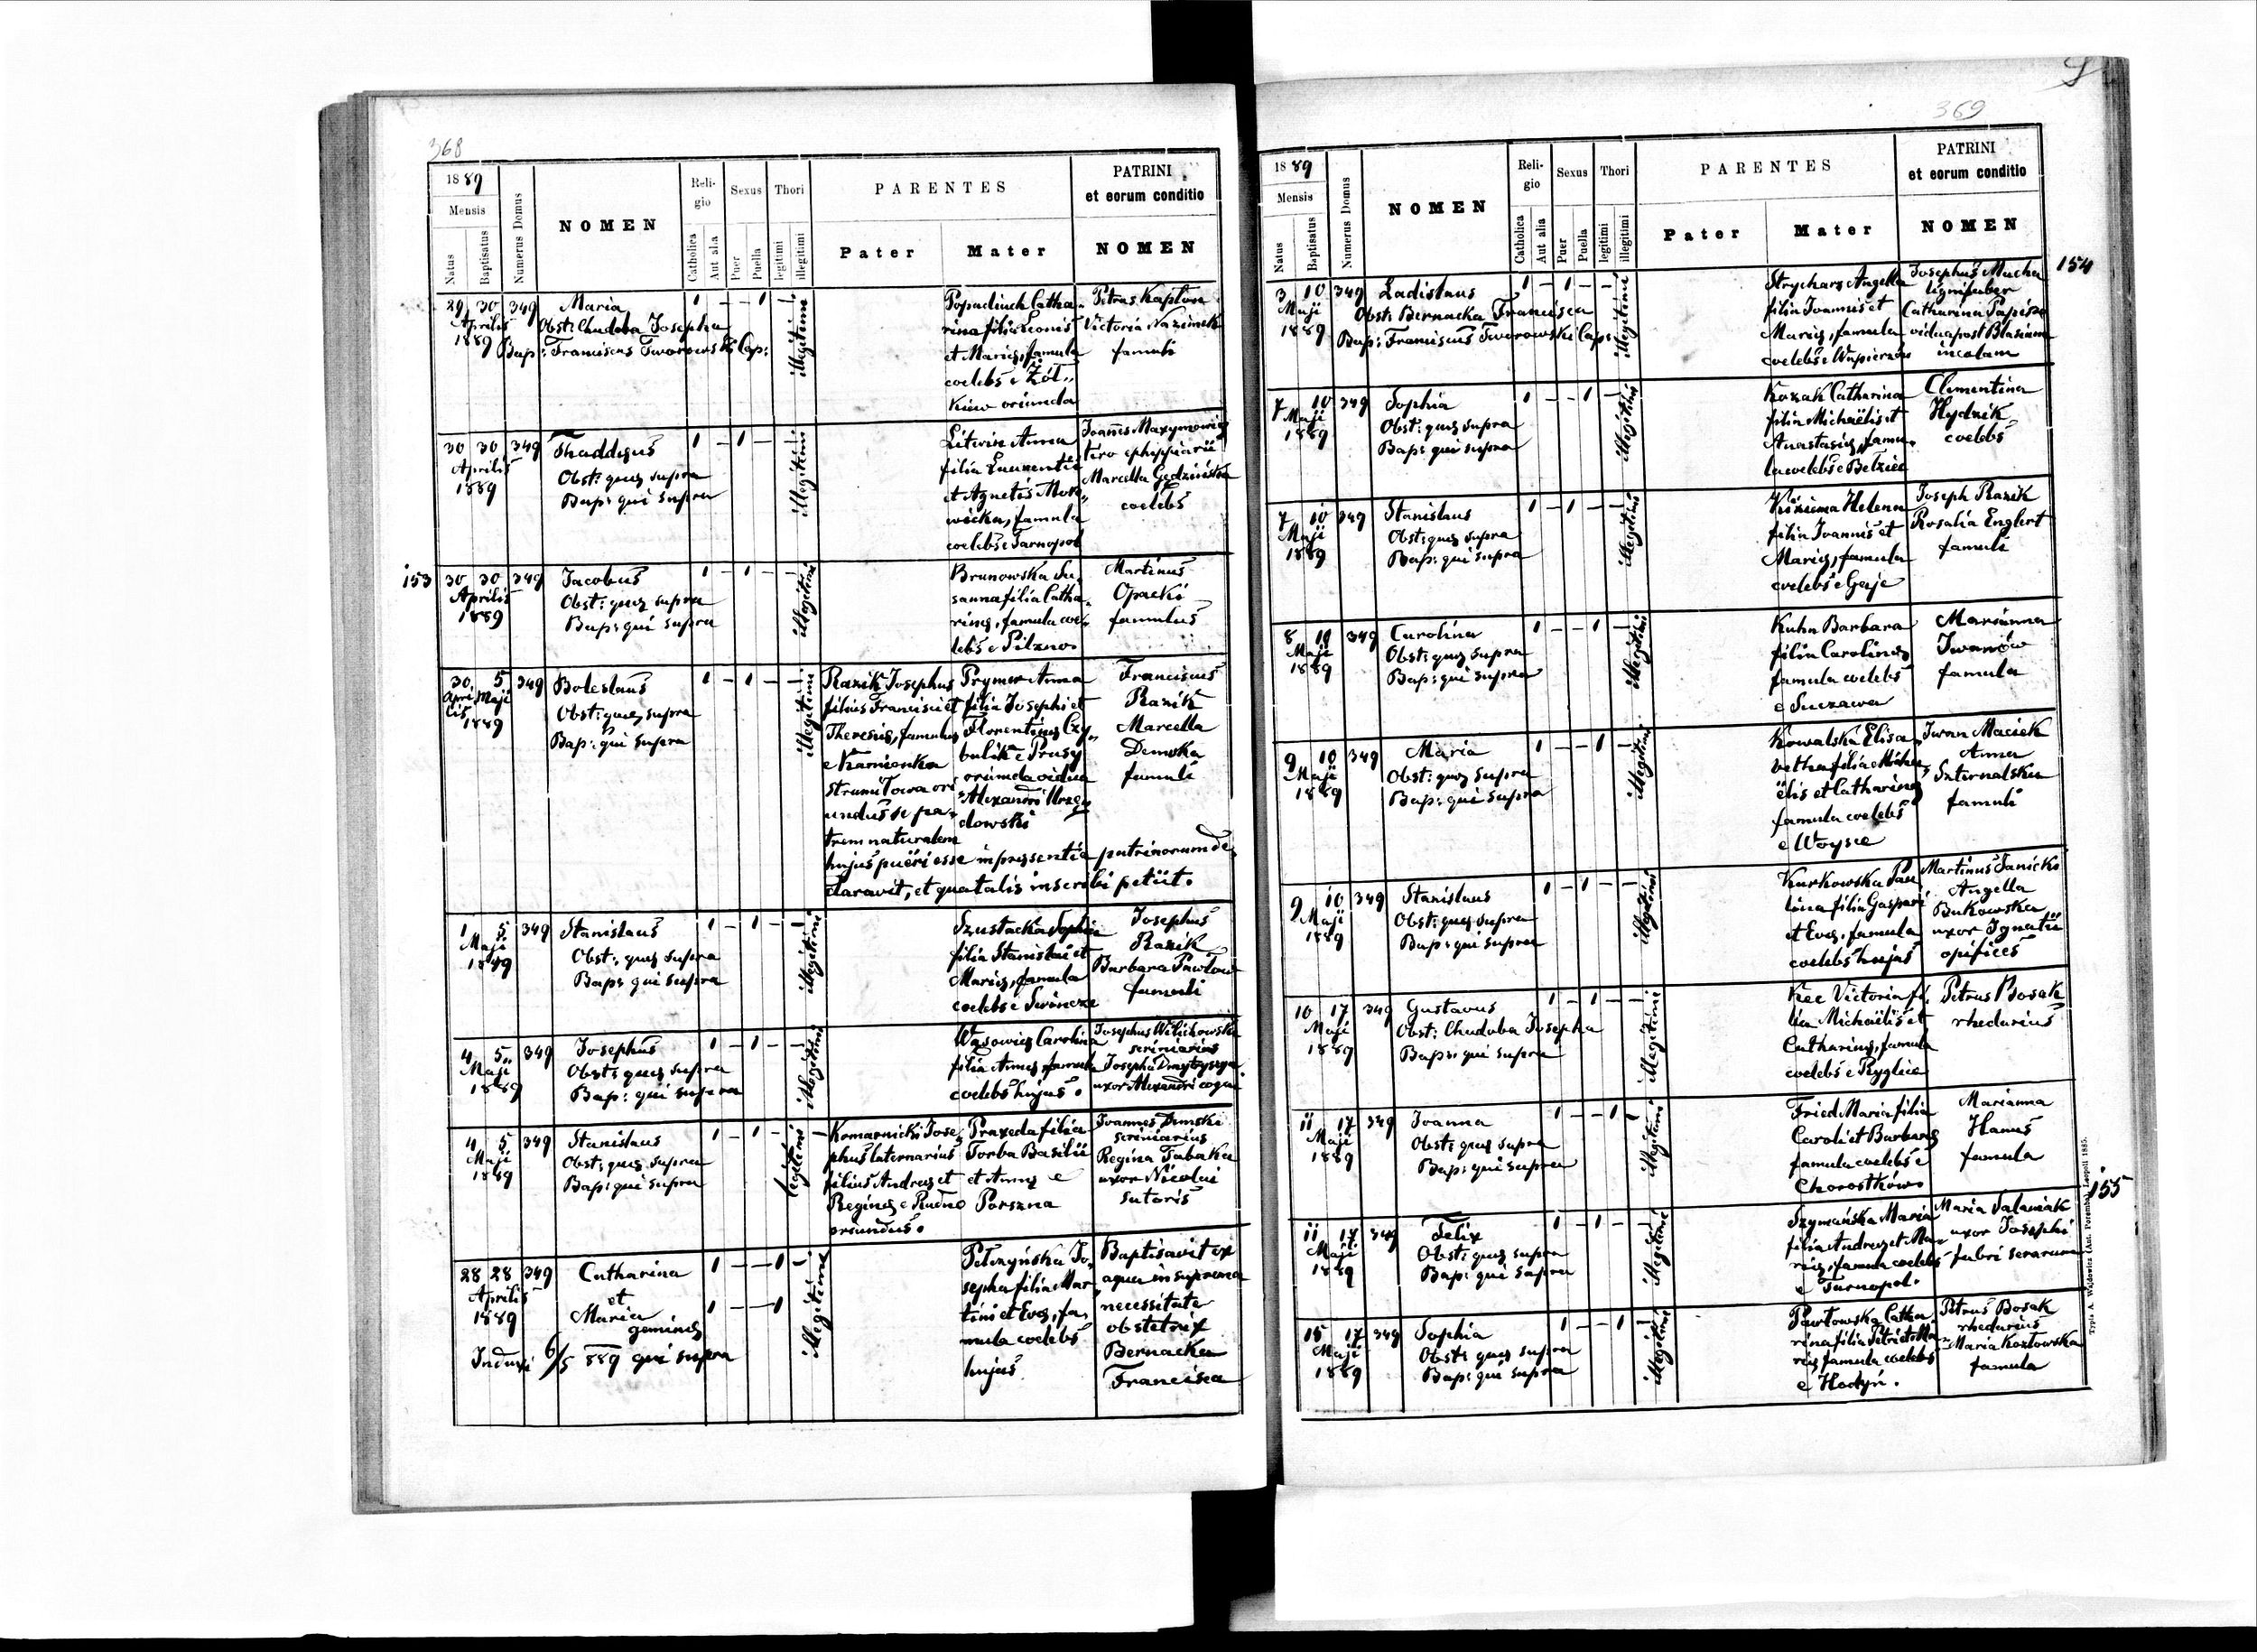 368
1889
Mensis
Natus
Baptisatus
Numerus Domus
NOMEN
Reli-
gio
Catholica
Aut alia
Sexus
Puer
Puella
Thori
legitimi
illegitimi
PARENTES
Pater
Mater
PATRINI
et eorum conditio
NOMEN
29 30 349
Aprilis
1889
Maria
Obst: Chudoba Josepha
Bap: Franciscus Tworowski Cap:
illegitimi
Popadiuch Catha-
rina filia Leonis
et Mariæ, famula
coelebs e Żół„
kiew oriunda
Petrus Kaplon
Victoria Nazimek
famuli
30 30 349
Aprilis
1889
Thaddæus
Obst: quæ supra
Bap: qui supra
illegitimi
Litwin Anna
filia Laurentii
et Agnetis
famula
coelebs e Tarnopol
Joannes Maxymowicz
tiro ephippiarii
Marcella
coelebs
153
30 30 349
Aprilis
1889
Jacobus
Obst: quæ supra
Bap: qui supra
illegitimi
Brunowska Su„
sanna filia Catha„
rinæ, famula coe„
lebs e Pilzno
Martinus
Opacki
famulus
30 5 349
Apri Maji
lis
1889
Boleslaus
Obst: quæ supra
Bap: qui supra
illegitimi
Razik Josephus
filius Francisci et
Theresiæ, famulus
e Kamionka
strumiłowa ori
undus se pa„
trem naturalem
hujus pueri esse in præsentia patrinorum de
claravit, et qua talis inscribi petiit.
Prymor Anna
filia Josephi et
Florentinæ Czy„
bulik e Prusy
oriunda vidua
Alexandri
dowski
Franciscus
Razik
Marcella
Demska
famuli
1 5 349
Maji
1889
Stanislaus
Obst: quæ supra
Bap: qui supra
illegitimi
Szustacka Sophia
filia Stanislai et
Mariæ, famula
coelebs e
Josephus
Razik
Barbara Pawłow
famuli
4 5 349
Maji
1889
Josephus
Obst: quæ supra
Bap: qui supra
illegitimi
Wąsowicz Carolina
filia Annæ, famula
coelebs hujas.
Josephus Wilichowski
scriniarius
Josepha
uxor Alexandri
4 5 349
Maji
1889
Stanislaus
Obst: quæ supra
Bap: qui supra
legitimi
Komarnicki Jose„
phus laternarius
filius Andreæ et
Reginæ e Rudno
oriundus.
Praxeda filia
Torba Basilii
et Annæ e
Porszna
Joannes Dmski
scriniarius
Regina Tabaka
uxor Nicolai
sutoris
28 28 349
Aprilis
1889
Catharina
et
Maria
geminæ
Induxi 6/5 889 qui supra
illegitimi
Pełczyńska Jo„
sepha filia Mar„
tini et Evæ, fa„
mula coelebs
hujas
Baptisavit ex
aqua in suprema
necessitate
obstetrix
Bernacka
Francisca
369
1889
Mensis
Natus
Baptisatus
Numerus Domus
NOMEN
Reli-
gio
Catholica
Aut alia
Sexus
Puer
Puella
Thori
legitimi
illegitimi
PARENTES
Pater
Mater
PATRINI
et eorum conditio
NOMEN
154
3 10 349
Maji
1889
Ladislaus
Obst: Bernacka Francisca
Bap: Franciscus Tworowski Cap:
illegitimi
Strycharz Angella
filia Joannis et
Mariæ, famula
coelebs e
Josephus Mucha
lignifaber
Catharina
vidua post Blasium
incolam
7 10 349
Maji
1889
Sophia
Obst: quæ supra
Bap: qui supra
illegitimi
Kozak Catharina
filia Michaëlis et
Anastasiæ, famu„
la coelebs e Bełzec
Clementina
Hydzik
coelebs
7 10 349
Maji
1889
Stanislaus
Obst: quæ supra
Bap: qui supra
illegitimi
Helena
filia Joannis et
Mariæ, famula
coelebs e Gaje
Joseph Razik
Rosalia Englert
famuli
8 10 349
Maji
1889
Carolina
Obst: quæ supra
Bap: qui supra
illegitimi
Kuhn Barbara
filia Carolinæ
famula coelebs
e Suczawa
Marianna
Iwanów
famula
9 10 349
Maji
1889
Maria
Obst: quæ supra
Bap: qui supra
illegitimi
Kowalska Elisa„
betha filia Micha„
ëlis et Catharinæ
famula coelebs
e Woysce
Iwan Maciek
Anna
Szternalska
famuli
9 10 349
Maji
1889
Stanislaus
Obst: quæ supra
Bap: qui supra
illegitimi
Kurkowska Pau
lina filia Gaspari
et Evæ, famula
coelebs hujas
Martinus Janicki
Angella
Bukowska
uxor Ignatii
opifices
10 17 349
Maji
1889
Gustavus
Obst: Chudoba Josepha
Bap: qui supra
illegitimi
Kec Victoria fi„
lia Michaëlis et
Catharinæ, famula
coelebs e Ryglice
Petrus Bosak
rhedarius
11 17 349
Maji
1889
Joanna
Obst: quæ supra
Bap: qui supra
illegitimi
Fried Maria filia
Caroli et Barbaræ
famula coelebs e
Chorostków
Marianna
Hamus
famula
155
11 17 349
Maji
1889
Felix
Obst: quæ supra
Bap: qui supra
illegitimi
Szymańska Maria
filia Andreæ et Ma„
riæ, famula coelebs
e Tarnopol.
Maria Salamak
uxor Josephi
fabri serarum
15 17 349
Maji
1889
Sophia
Obst: quæ supra
Bap: qui supra
illegitimi
Pawłowska Catha„
rina filia Petri et Ma„
riæ famula coelebs
e Hodyń.
Petrus Bosak
rhedarius
Maria Kozłowska
famula
Typis A. Wajdowicz (Ant. Poremba) Leopoli 1885.